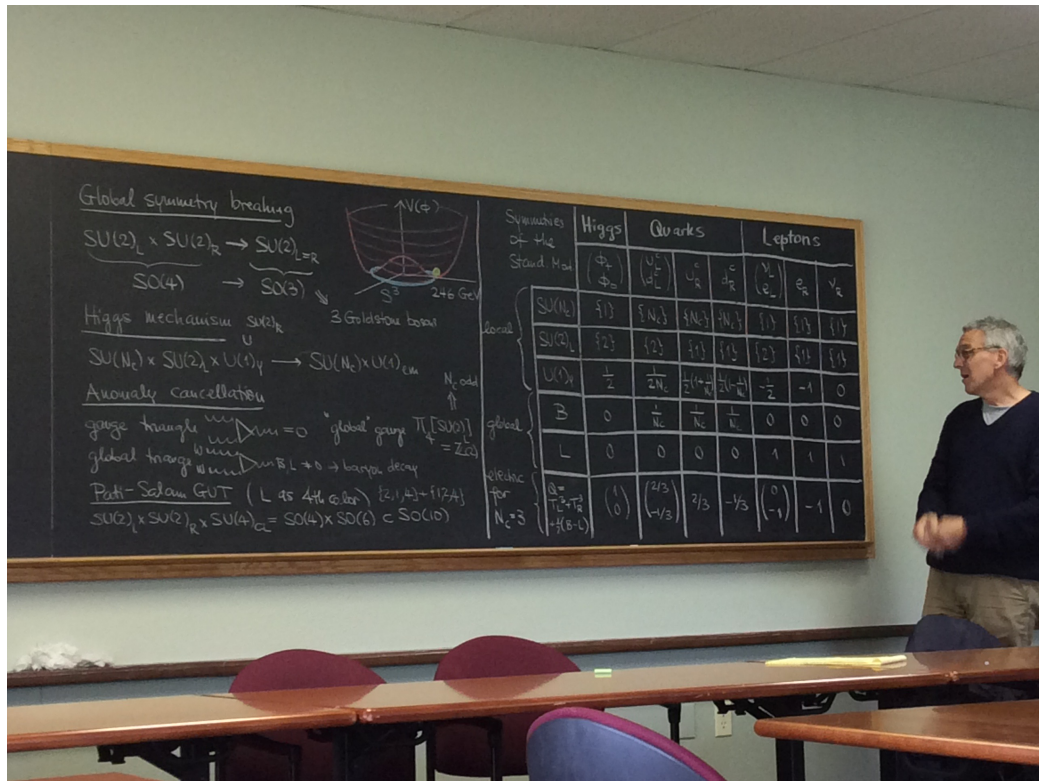 Global symmetry breaking
SU(2)_L × SU(2)_R → SU(2)_{L=R}
SO(4) → SO(3)
V(φ)
S³ 246 GeV
3 Goldstone boson
Higgs mechanism SU(2)_R
∪
SU(N_c) × SU(2)_L × U(1)_Y → SU(N_c) × U(1)_em
Anomaly cancellation
N_c odd
⇑
gauge triangle = 0 "global" gauge Π_4[SU(2)_L] = Z(2)
global triangle W W B,L ≠ 0 → baryon decay
Pati-Salam GUT (L as 4th color) {2,1,4} + {1,2,4}
SU(2)_L × SU(2)_R × SU(4)_CL = SO(4) × SO(6) ⊂ SO(10)
Symmetries of the Stand. Mod Higgs Quarks Leptons
(Φ_+ Φ_0) (u_L^c d_L^c) u_R^c d_R^c (ν_L e_L) e_R ν_R
local
SU(N_c) {1} {N_c} {N_c} {N_c} {1} {1} {1}
SU(2)_L {2} {2} {1} {1} {2} {1} {1}
U(1)_Y 1/2 1/2N_c 1/2(1+1/N_c) 1/2(1-1/N_c) -1/2 -1 0
global
B 0 1/N_c 1/N_c 1/N_c 0 0 0
L 0 0 0 0 1 1 1
electric for N_c=3
Q = T_L^3 + T_R^3 + 1/2(B-L) (1 0) (2/3 -1/3) 2/3 -1/3 (0 -1) -1 0